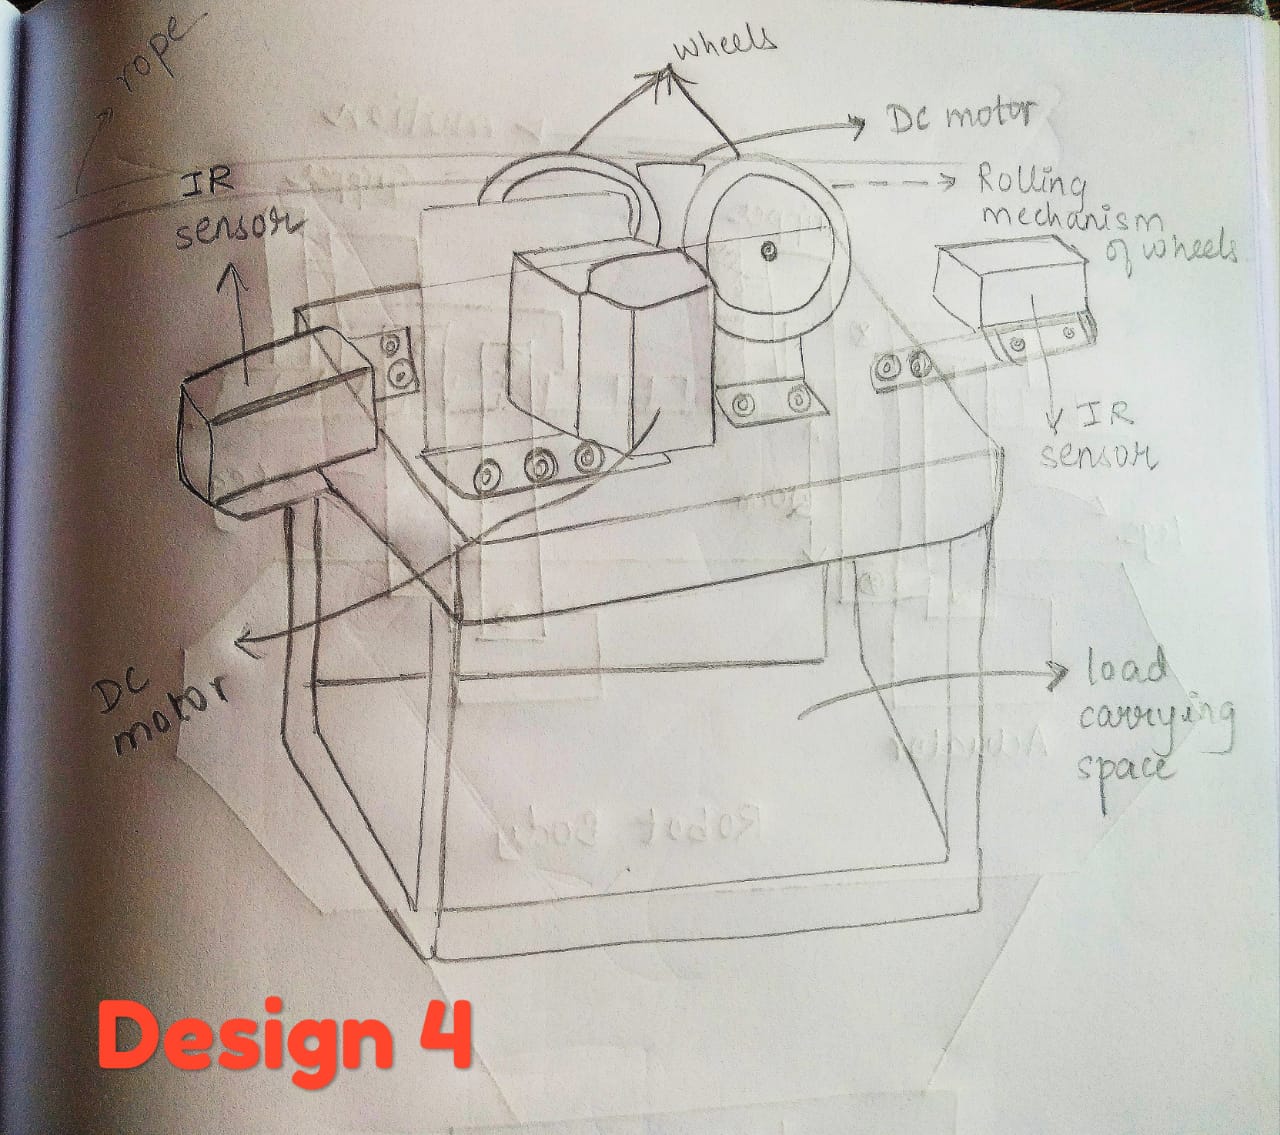 rope
wheels
DC motor
IR
sensor
Rolling
mechanism
of wheels
IR
sensor
DC
motor
load
carrying
space
Robot Body
Design 4